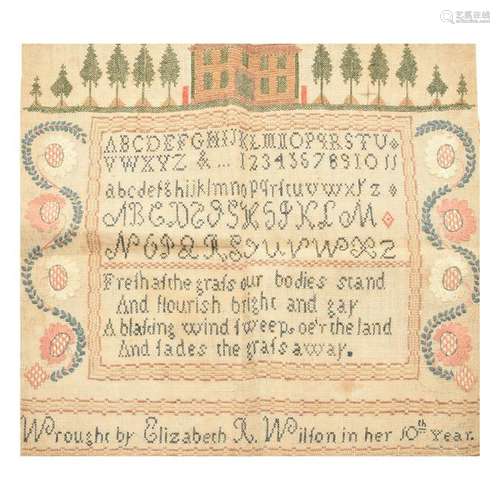 ABCDEFGHIJKLMNOPQRSTU
VWXYZ & ... 1234567891011
abcdefghijklmnopqrstuvwxyz
ABCDEFGHIJKLM
NOPQRSTUVWXZ
Freſh aſ the graſs our bodies stand
And flourish bright and gay
A blaſting wind ſweeps oe'r the land
And fades the graſs away.
Wrought by Elizabeth R. Wilſon in her 10th Year.